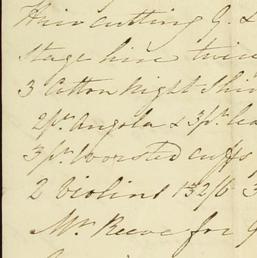 Hair cutting G. &
Stage hire twice
3 Cotton Night Shir
2pr. Angola & 3pr. lea
3pr. Worsted cuffs
2 Violins 132/6 3
Mr. Reeve for G